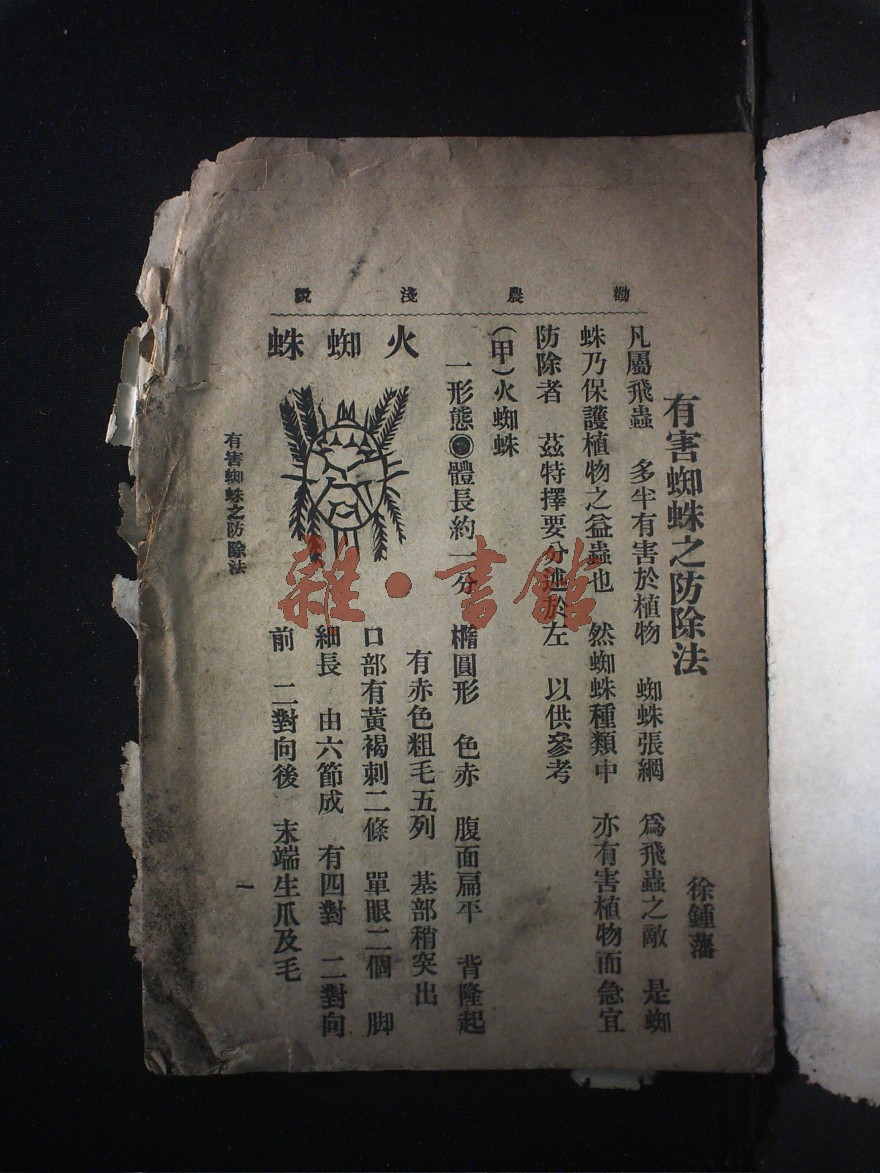 勸農淺說
有害蜘蛛之防除法
徐鍾藩
凡屬飛蟲　多半有害於植物　蜘蛛張網　爲飛蟲之敵　是蜘
蛛乃保護植物之益蟲也　然蜘蛛種類中　亦有害植物而急宜
防除者　茲特擇要分述於左　以供參考
(甲)火蜘蛛
一形態●體長約一分　橢圓形　色赤　腹面扁平　背隆起
有赤色粗毛五列　基部稍突出
口部有黃褐刺二條　單眼二個　脚
細長　由六節成　有四對　二對向
前　二對向後　末端生爪及毛
火蜘蛛
有害蜘蛛之防除法
一
雜·書館